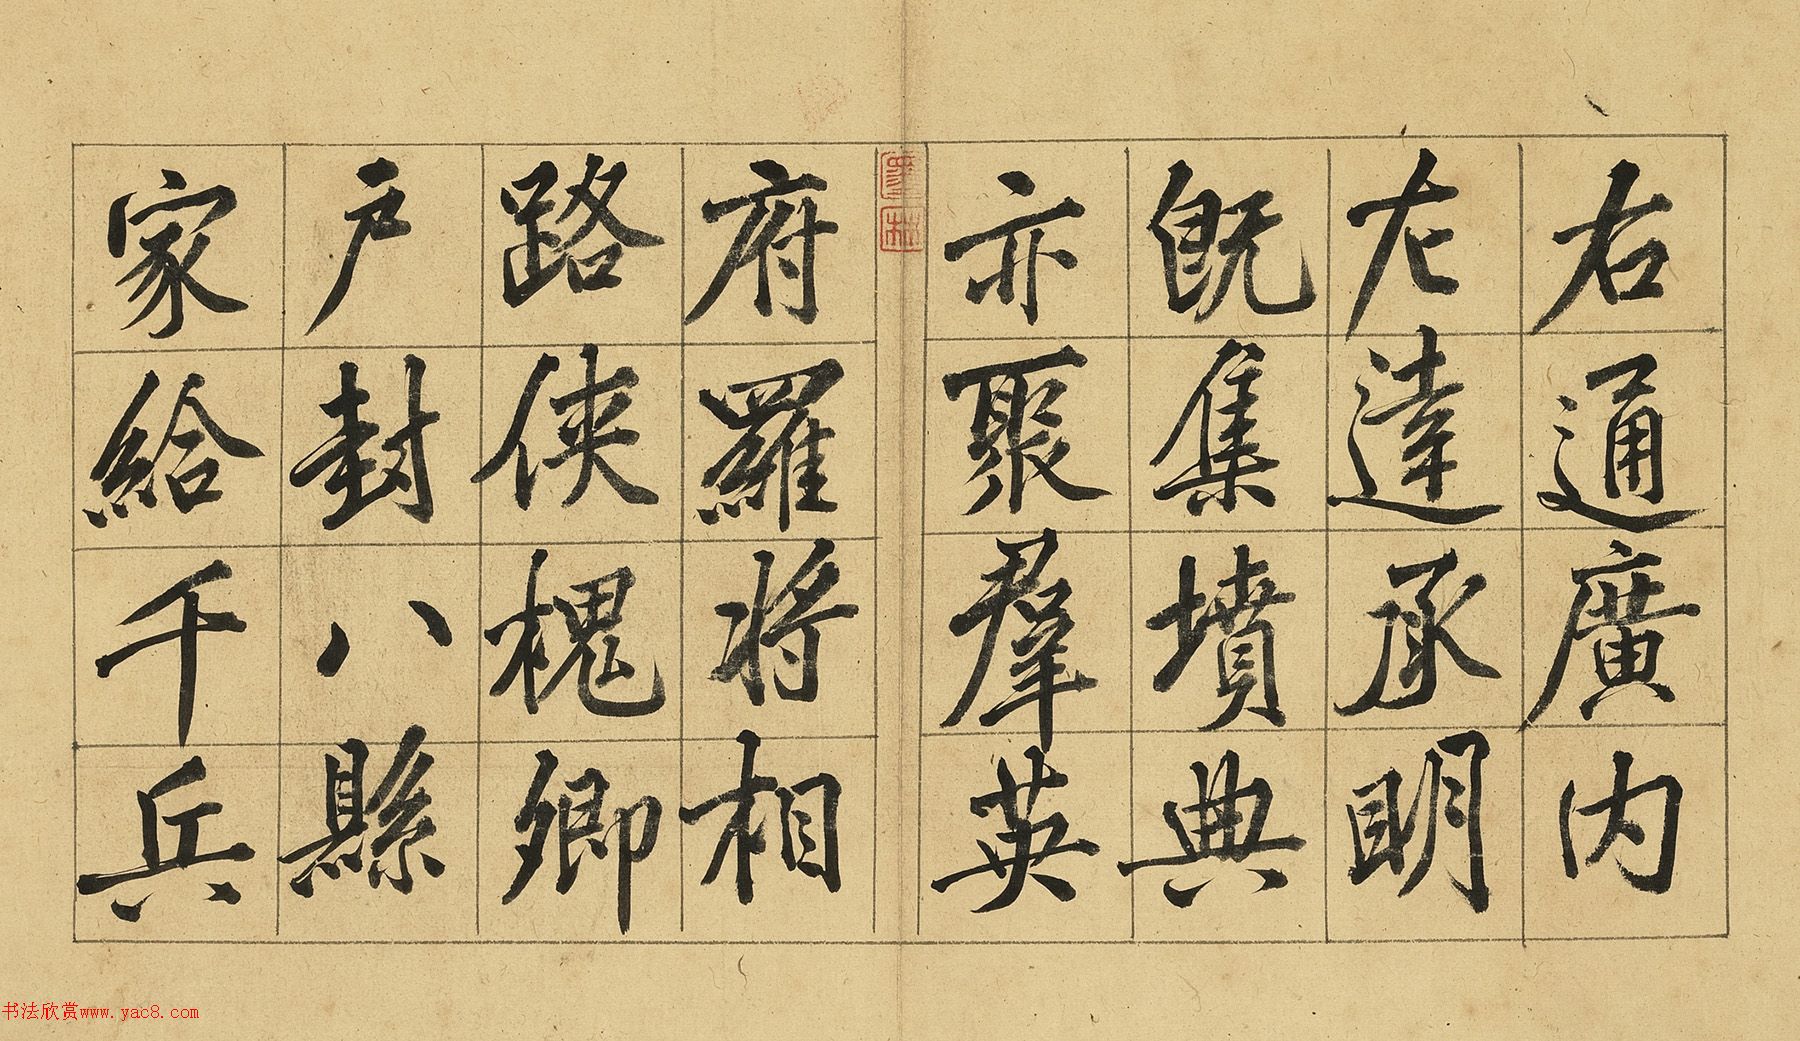 右通廣内
左達承明
既集墳典
亦聚羣英
府羅將相
路俠槐卿
户封八縣
家給千兵
书法欣赏www.yac8.com